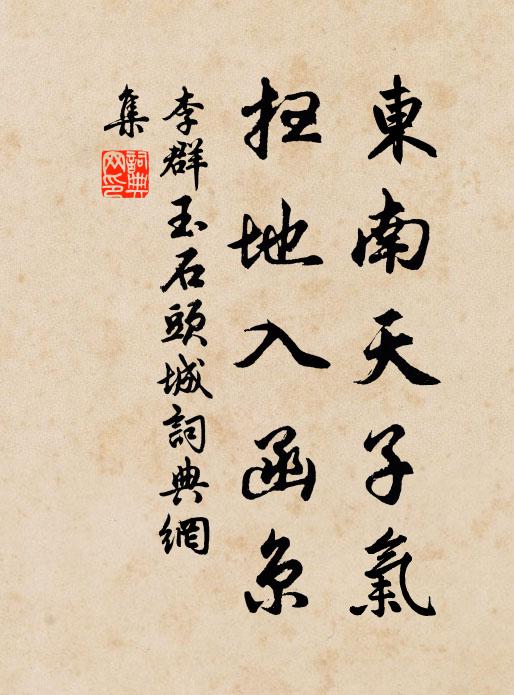 東南天子氣
掃地入函京
李群玉石頭城詞典網
集
詞典
网印